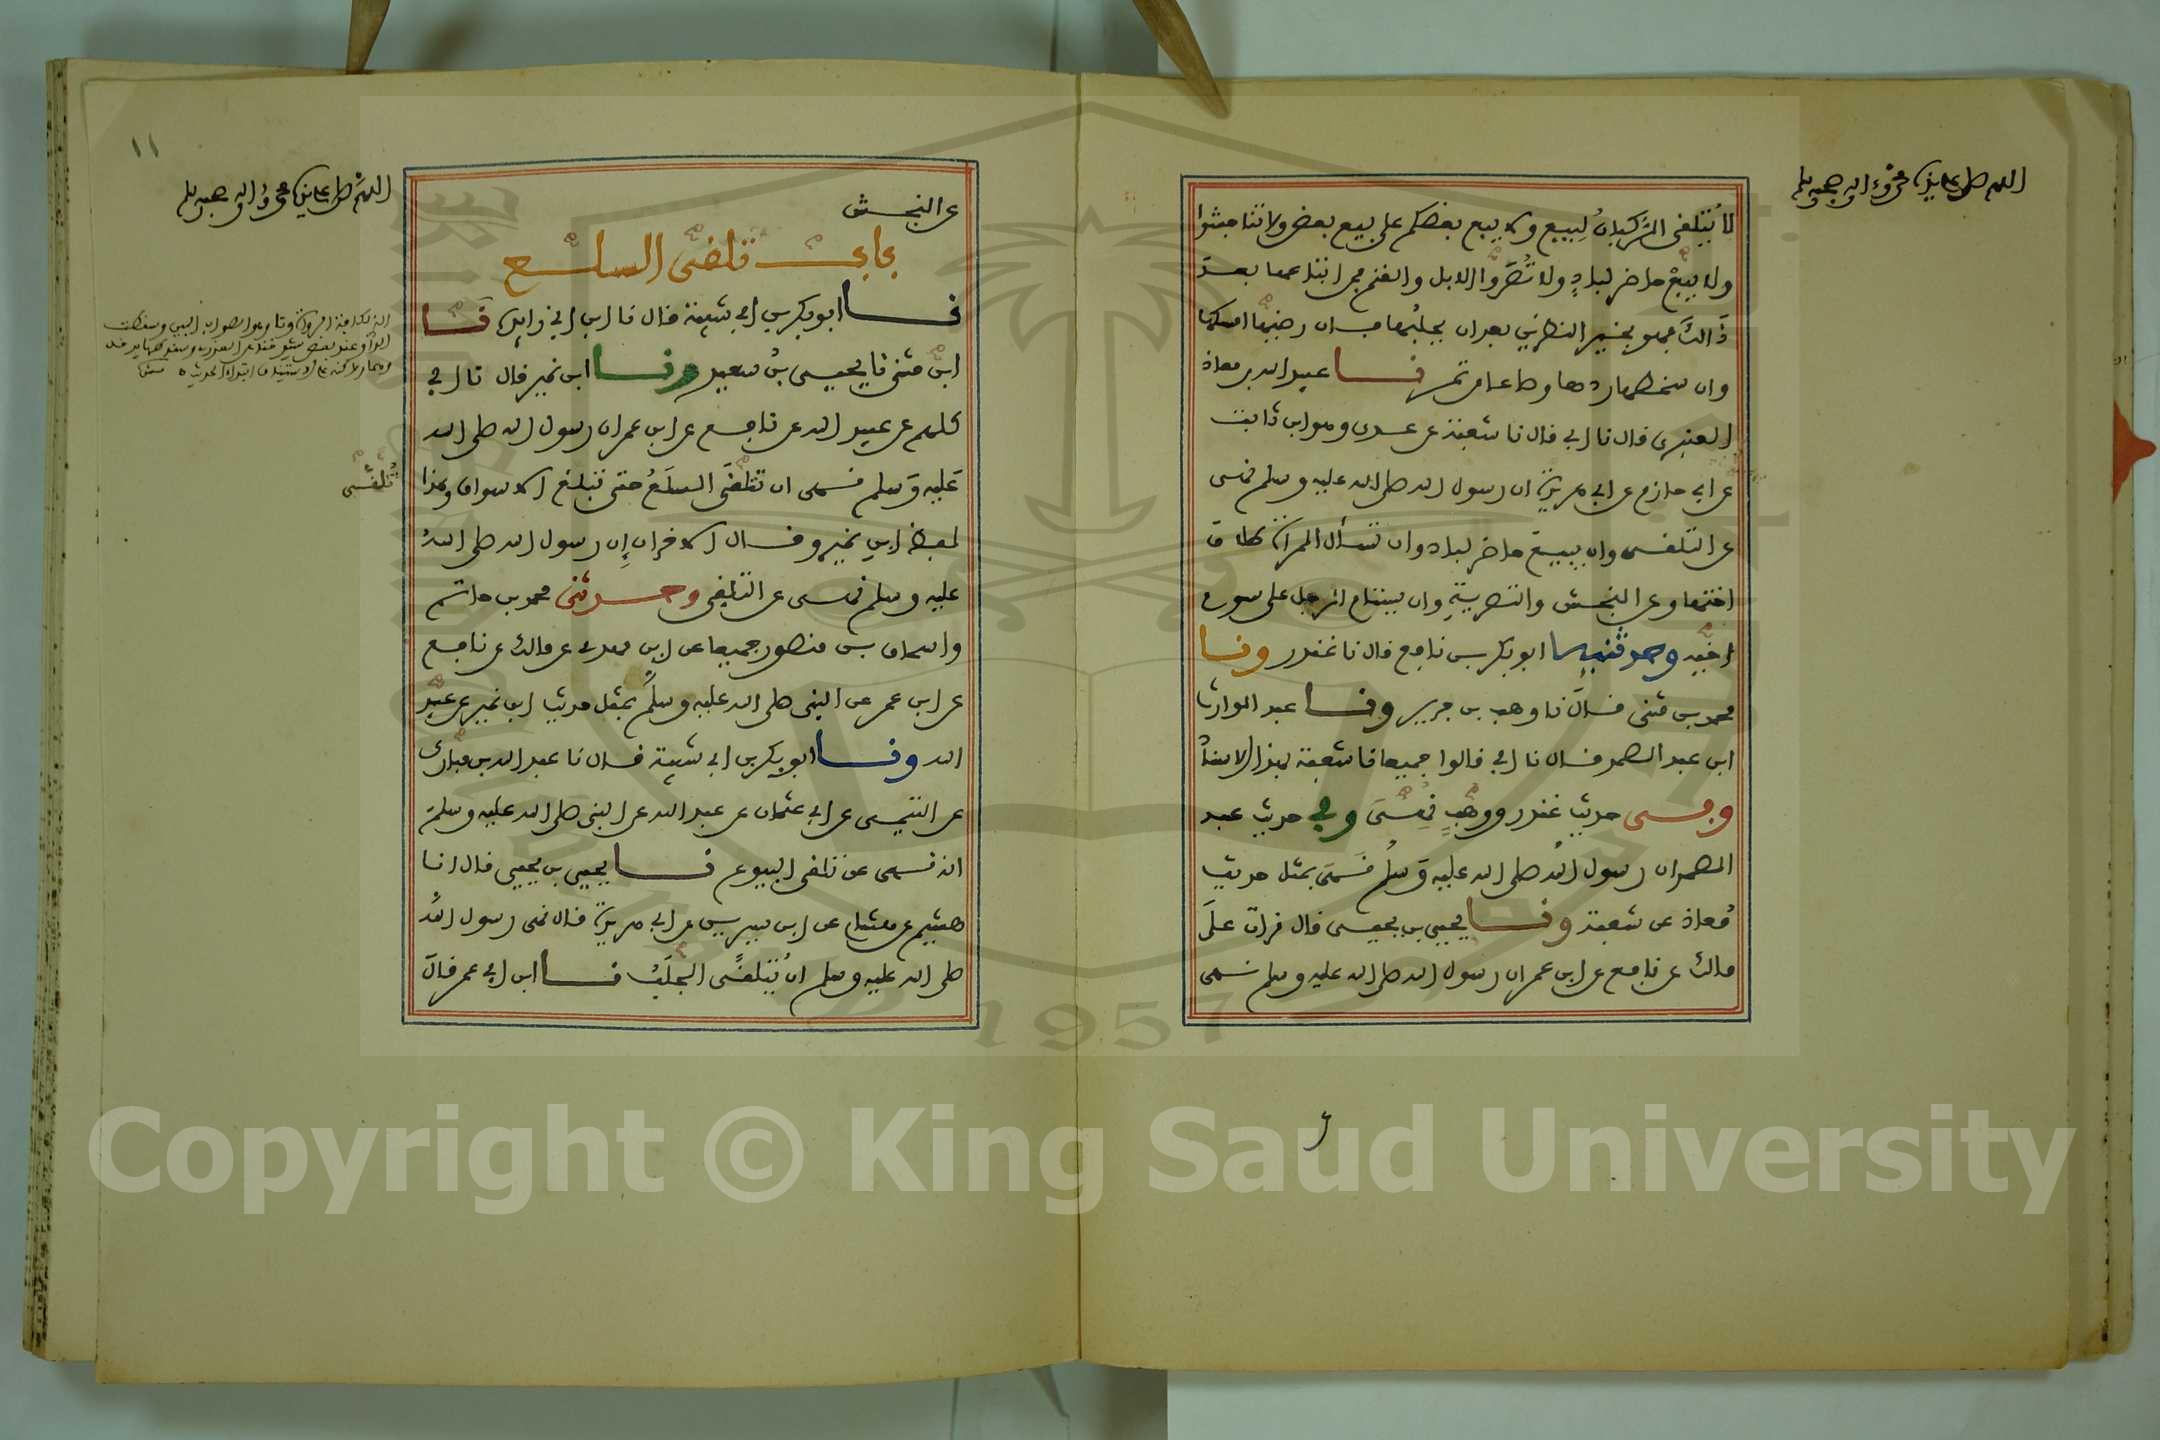 اللهم صل على سيدنا محمد وءاله وصحبه وسلم
لا يُتلقى الركبان لبيع ولا يبع بعضكم على بيع بعض ولا تناجشوا
ولا يبع حاضر لباد ولا تُصَرُّوا الابل والغنم فمن ابتاعها بعد
ذالك فهو بخير النظرين بعد ان يحلبها فان رضيها امسكها
وان سخطها ردها وصاعا من تمر نا عبيد الله بن معاذ
العنبري قال نا ابي قال نا شعبة عن عدي وهو ابن ثابت
عن ابي حازم عن ابي هريرة ان رسول الله صلى الله عليه وسلم نهى
عن التلقي وان يبيع حاضر لباد وان تسأل المرأة طلاق
اختها وعن النجش والتصرية وان يستام الرجل على سوم
اخيه وحدثنيه ابو بكر بن نافع قال نا غندر ونا
محمد بن مثنى قال نا وهب بن جرير ونا عبد الوارث
ابن عبد الصمد قال نا ابي قالوا جميعا نا شعبة بهذا الاسناد
وفي حديث غندر ووهب نُهِيَ وفي حديث عبد
الصمد ان رسول الله صلى الله عليه وسلم نهى بمثل حديث
معاذ عن شعبة ونا يحيى بن يحيى قال قرات على
مالك عن نافع عن ابن عمر ان رسول الله صلى الله عليه وسلم نهى
١١
اللهم صل على سيدنا محمد وءاله وصحبه وسلم
عن النجش
باب تلقي السلع
نا ابو بكر بن ابي شيبة قال نا ابن ابي زايدة نا
ابن مثنى نا يحيى بن سعيد ونا ابن نمير قال نا ابي
كلهم عن عبيد الله عن نافع عن ابن عمر ان رسول الله صلى الله
عليه وسلم نهى ان تتلقى السلع حتى تبلغ الاسواق وهذا
تُلَقَّى
لفظ ابن نمير وقال الاخران ان رسول الله صلى الله
عليه وسلم نهى عن التلقي وحدثني محمد بن حاتم
واسحاق بن منصور جميعا عن ابن مهدي عن مالك عن نافع
عن ابن عمر عن النبي صلى الله عليه وسلم بمثل حديث ابن نمير عن عبيد
الله ونا ابو بكر بن ابي شيبة قال نا عبد الله بن مبارك
عن التيمي عن ابي عثمان عن عبد الله عن النبي صلى الله عليه وسلم
انه نهى عن تلقي البيوع نا يحيى بن يحيى قال انا
هشيم عن هشام عن ابن سيرين عن ابي هريرة قال نهى رسول الله
صلى الله عليه وسلم ان يُتلقى الجلب نا ابن ابي عمر قال
1957
Copyright © King Saud University